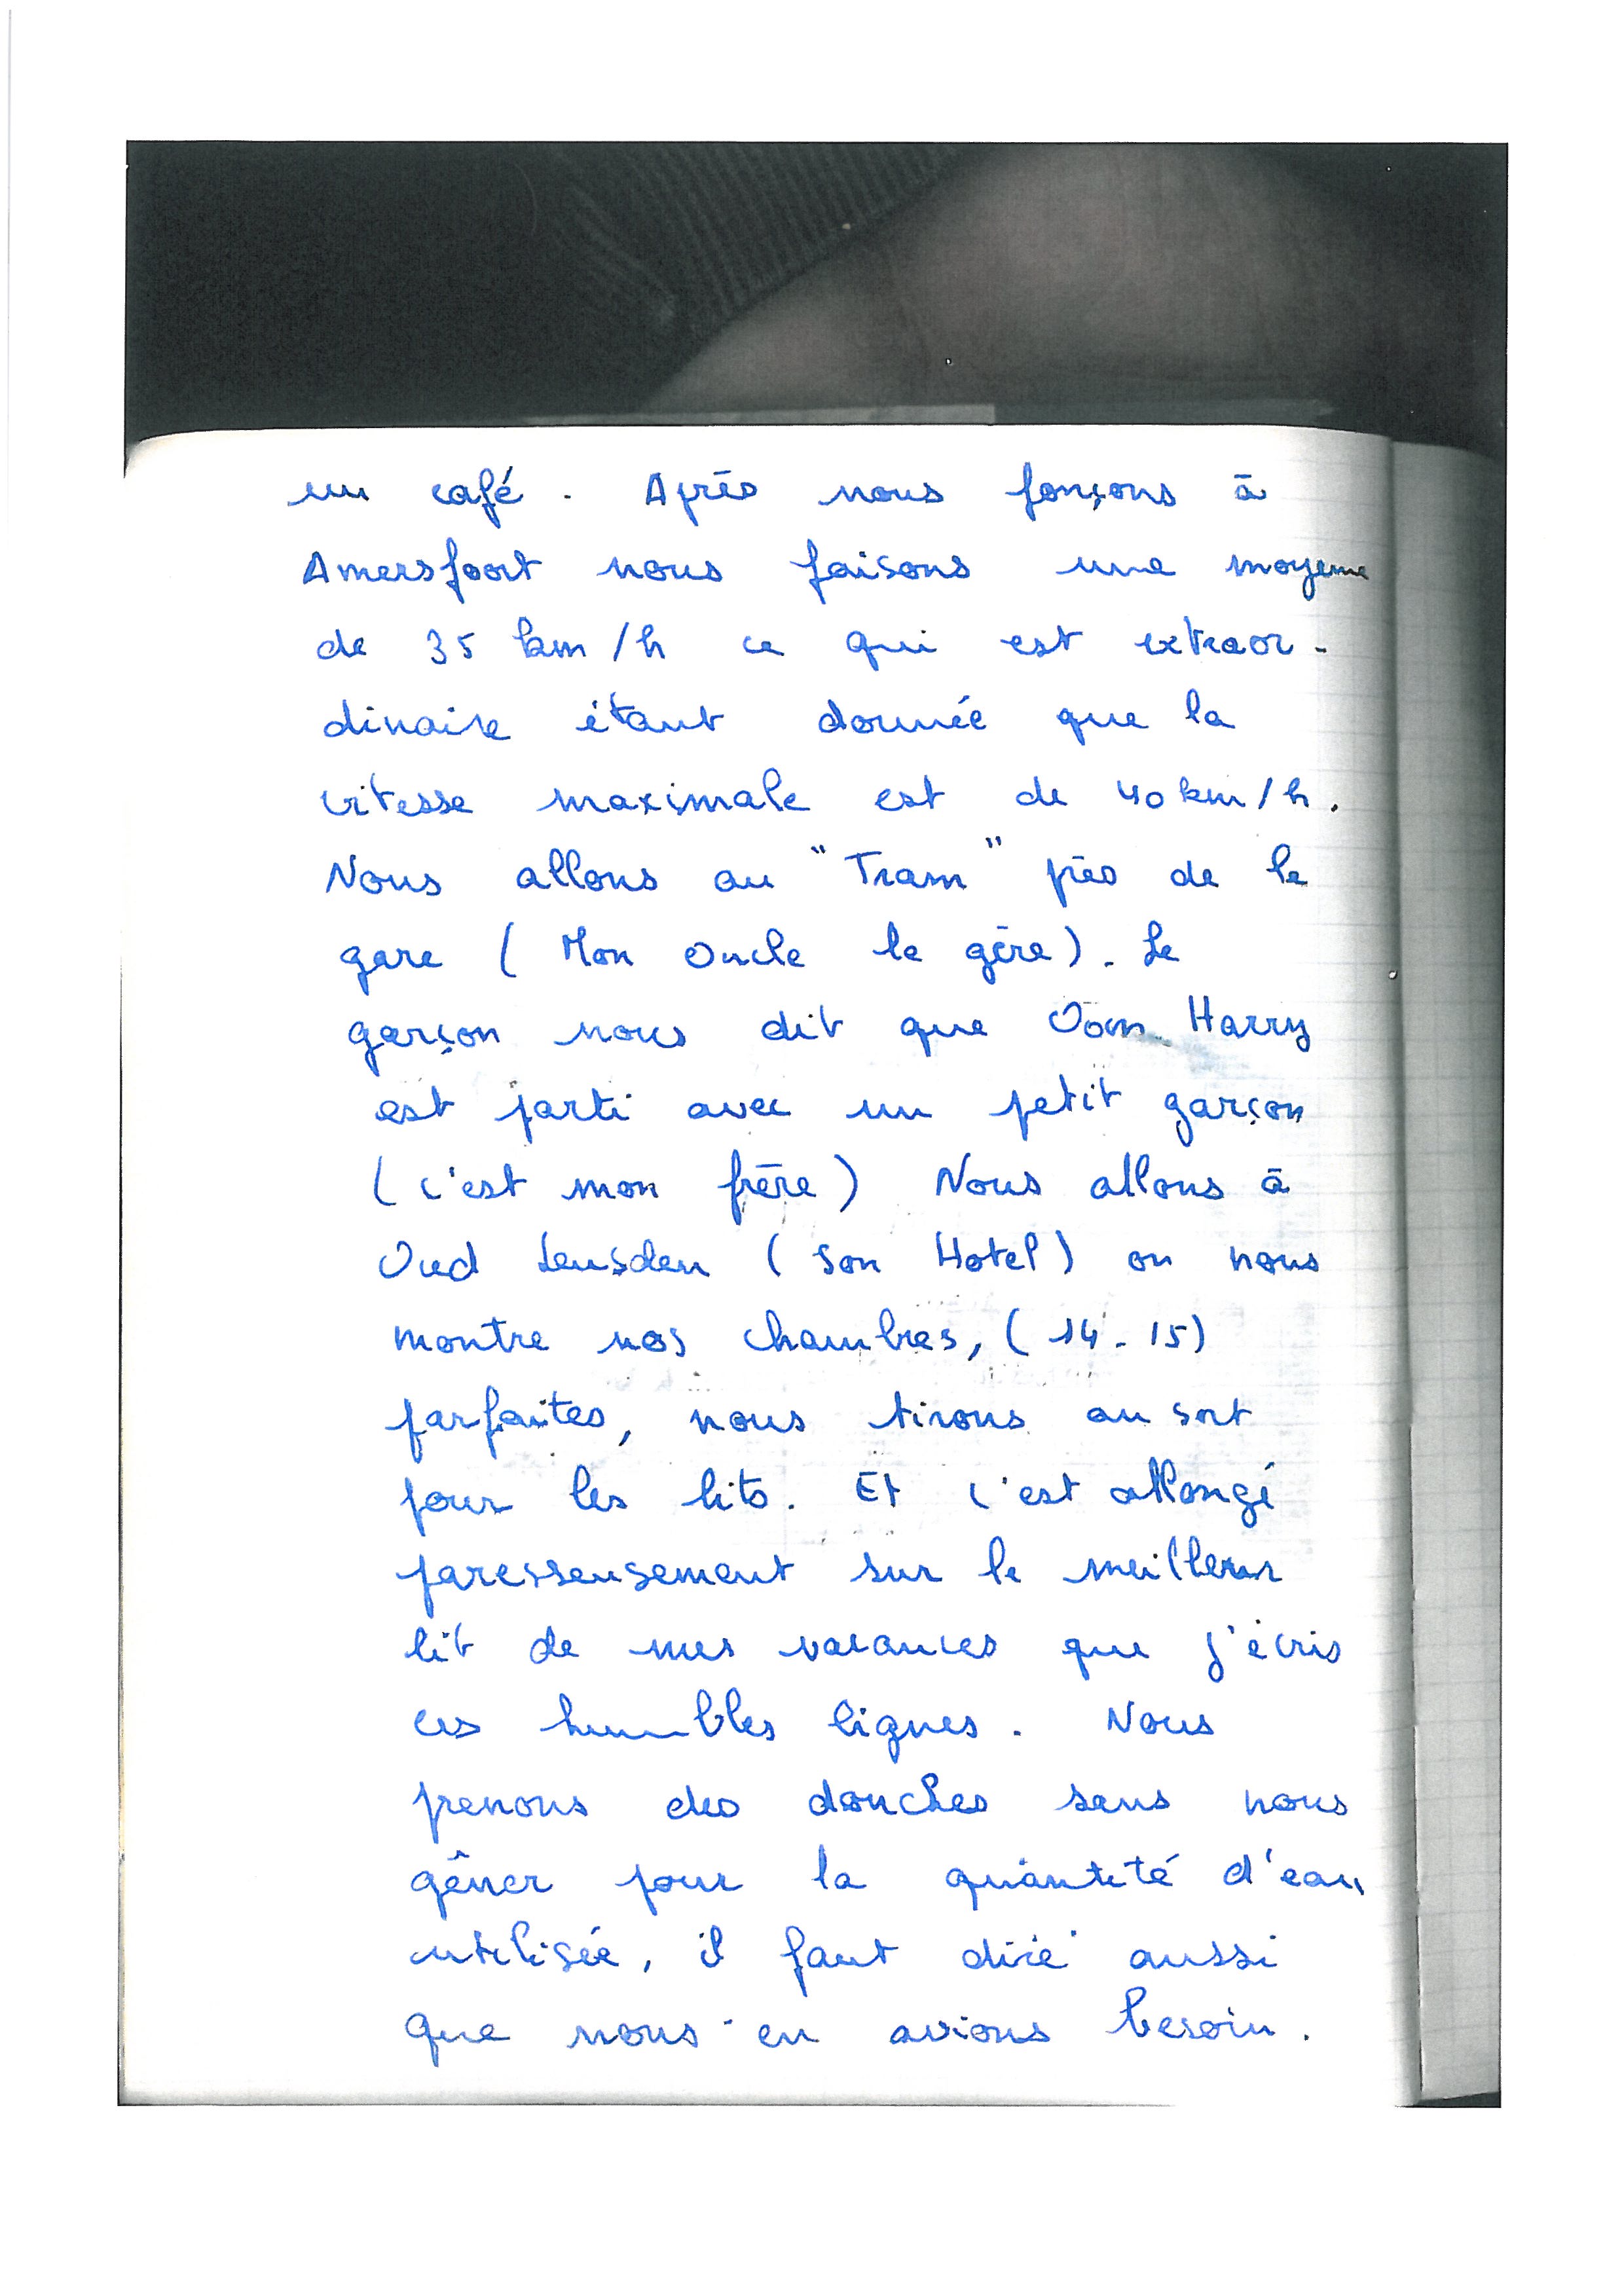 un café. Après nous fonçons à
Amersfoort nous faisons une moyenne
de 35 km/h ce qui est extraor-
dinaire étant donnée que la
vitesse maximale est de 40 km/h.
Nous allons au "Tram" près de la
gare (Mon Oncle le gère). Le
garçon nous dit que Oom Harry
est parti avec un petit garçon
(c'est mon frère) Nous allons à
Oud Leusden (son Hotel) on nous
montre nos chambres, (14-15)
parfaites, nous tirons au sort
pour les lits. Et c'est allongé
paresseusement sur le meilleur
lit de mes vacances que j'écris
ces humbles lignes. Nous
prenons des douches sans nous
gêner pour la quantité d'eau
utilisée, il faut dire aussi
que nous en avions besoin.